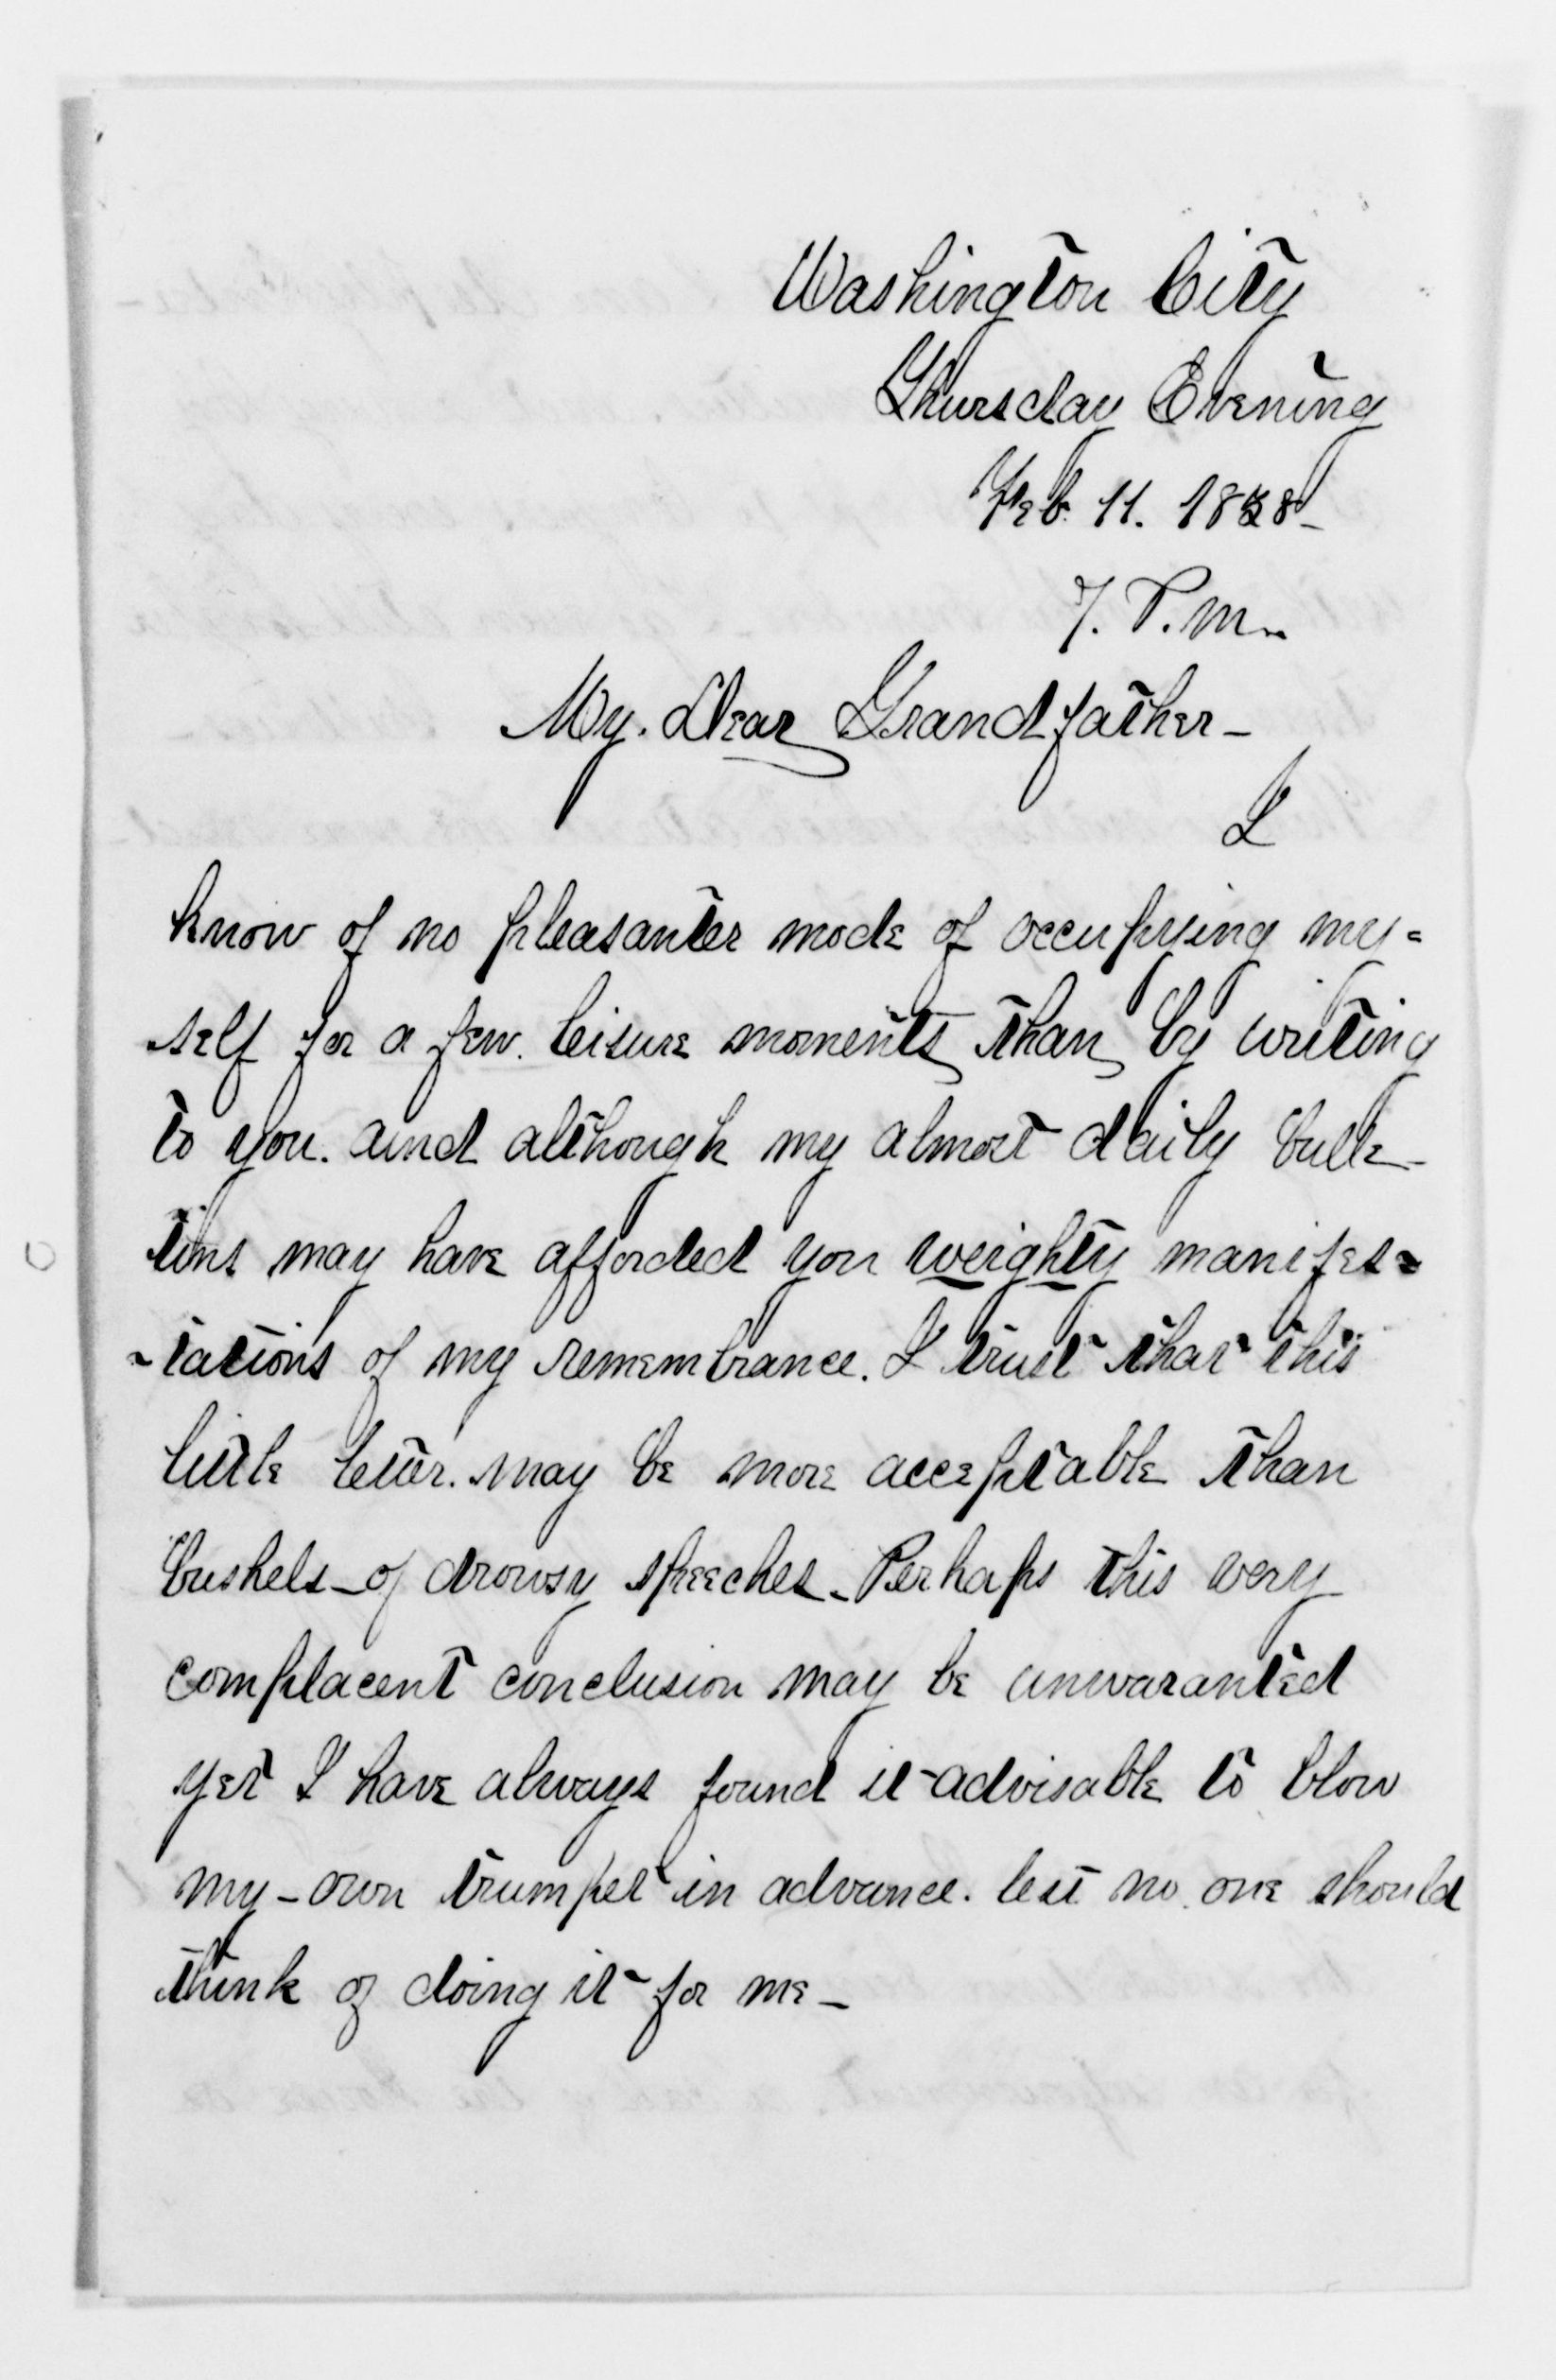 Washington City
Thursday Evening
Feb. 11. 1858-
7. P.M.
My. Dear Grandfather-
I
know of no pleasanter mode of occupying my=
self for a few. leisure moments than by writing
to you. and although my almost daily bulle-
tins may have afforded you weighty manifes=
-tations of my remembrance. I trust that this
little letter. may be more acceptable than
bushels-of drowsy speeches-Perhaps this very
complacent conclusion may be unwaranted
yet I have always found it-advisable to blow
my-own trumpet in advance. lest no. one should
think of doing it-for me-